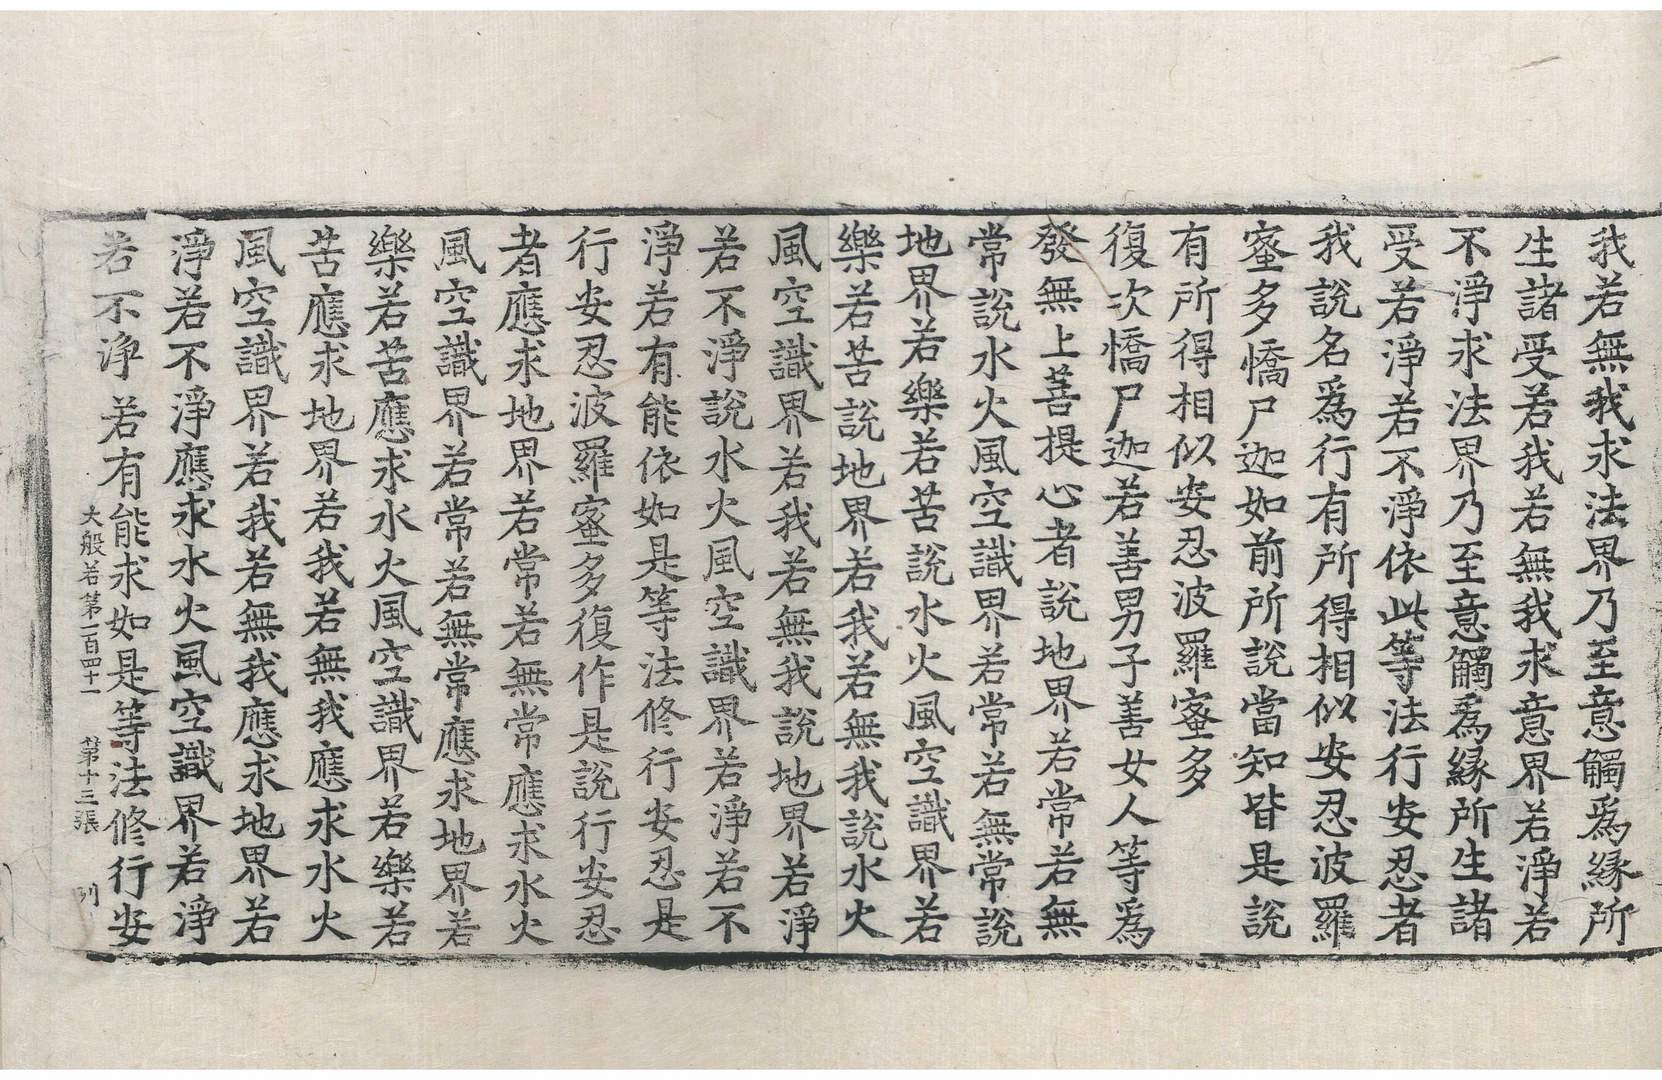 我若無我求法界乃至意觸爲縁所
生諸受若我若無我求意界若淨若
不淨求法界乃至意觸爲縁所生諸
受若淨若不淨依此等法行安忍者
我說名爲行有所得相似安忍波羅
蜜多憍尸迦如前所說當知皆是說
有所得相似安忍波羅蜜多
復次憍尸迦若善男子善女人等爲
發無上菩提心者說地界若常若無
常說水火風空識界若常若無常說
地界若樂若苦說水火風空識界若
樂若苦說地界若我若無我說水火
風空識界若我若無我說地界若淨
若不淨說水火風空識界若淨若不
淨若有能依如是等法修行安忍是
行安忍波羅蜜多復作是說行安忍
者應求地界若常若無常應求水火
風空識界若常若無常應求地界若
樂若苦應求水火風空識界若樂若
苦應求地界若我若無我應求水火
風空識界若我若無我應求地界若
淨若不淨應求水火風空識界若淨
若不淨若有能求如是等法修行安
大般若第一百四十一 第十三張